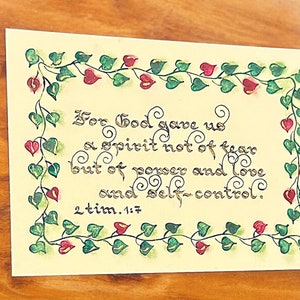 For God gave us
a spirit not of fear
but of power and love
and self-control.
2 tim. 1:7